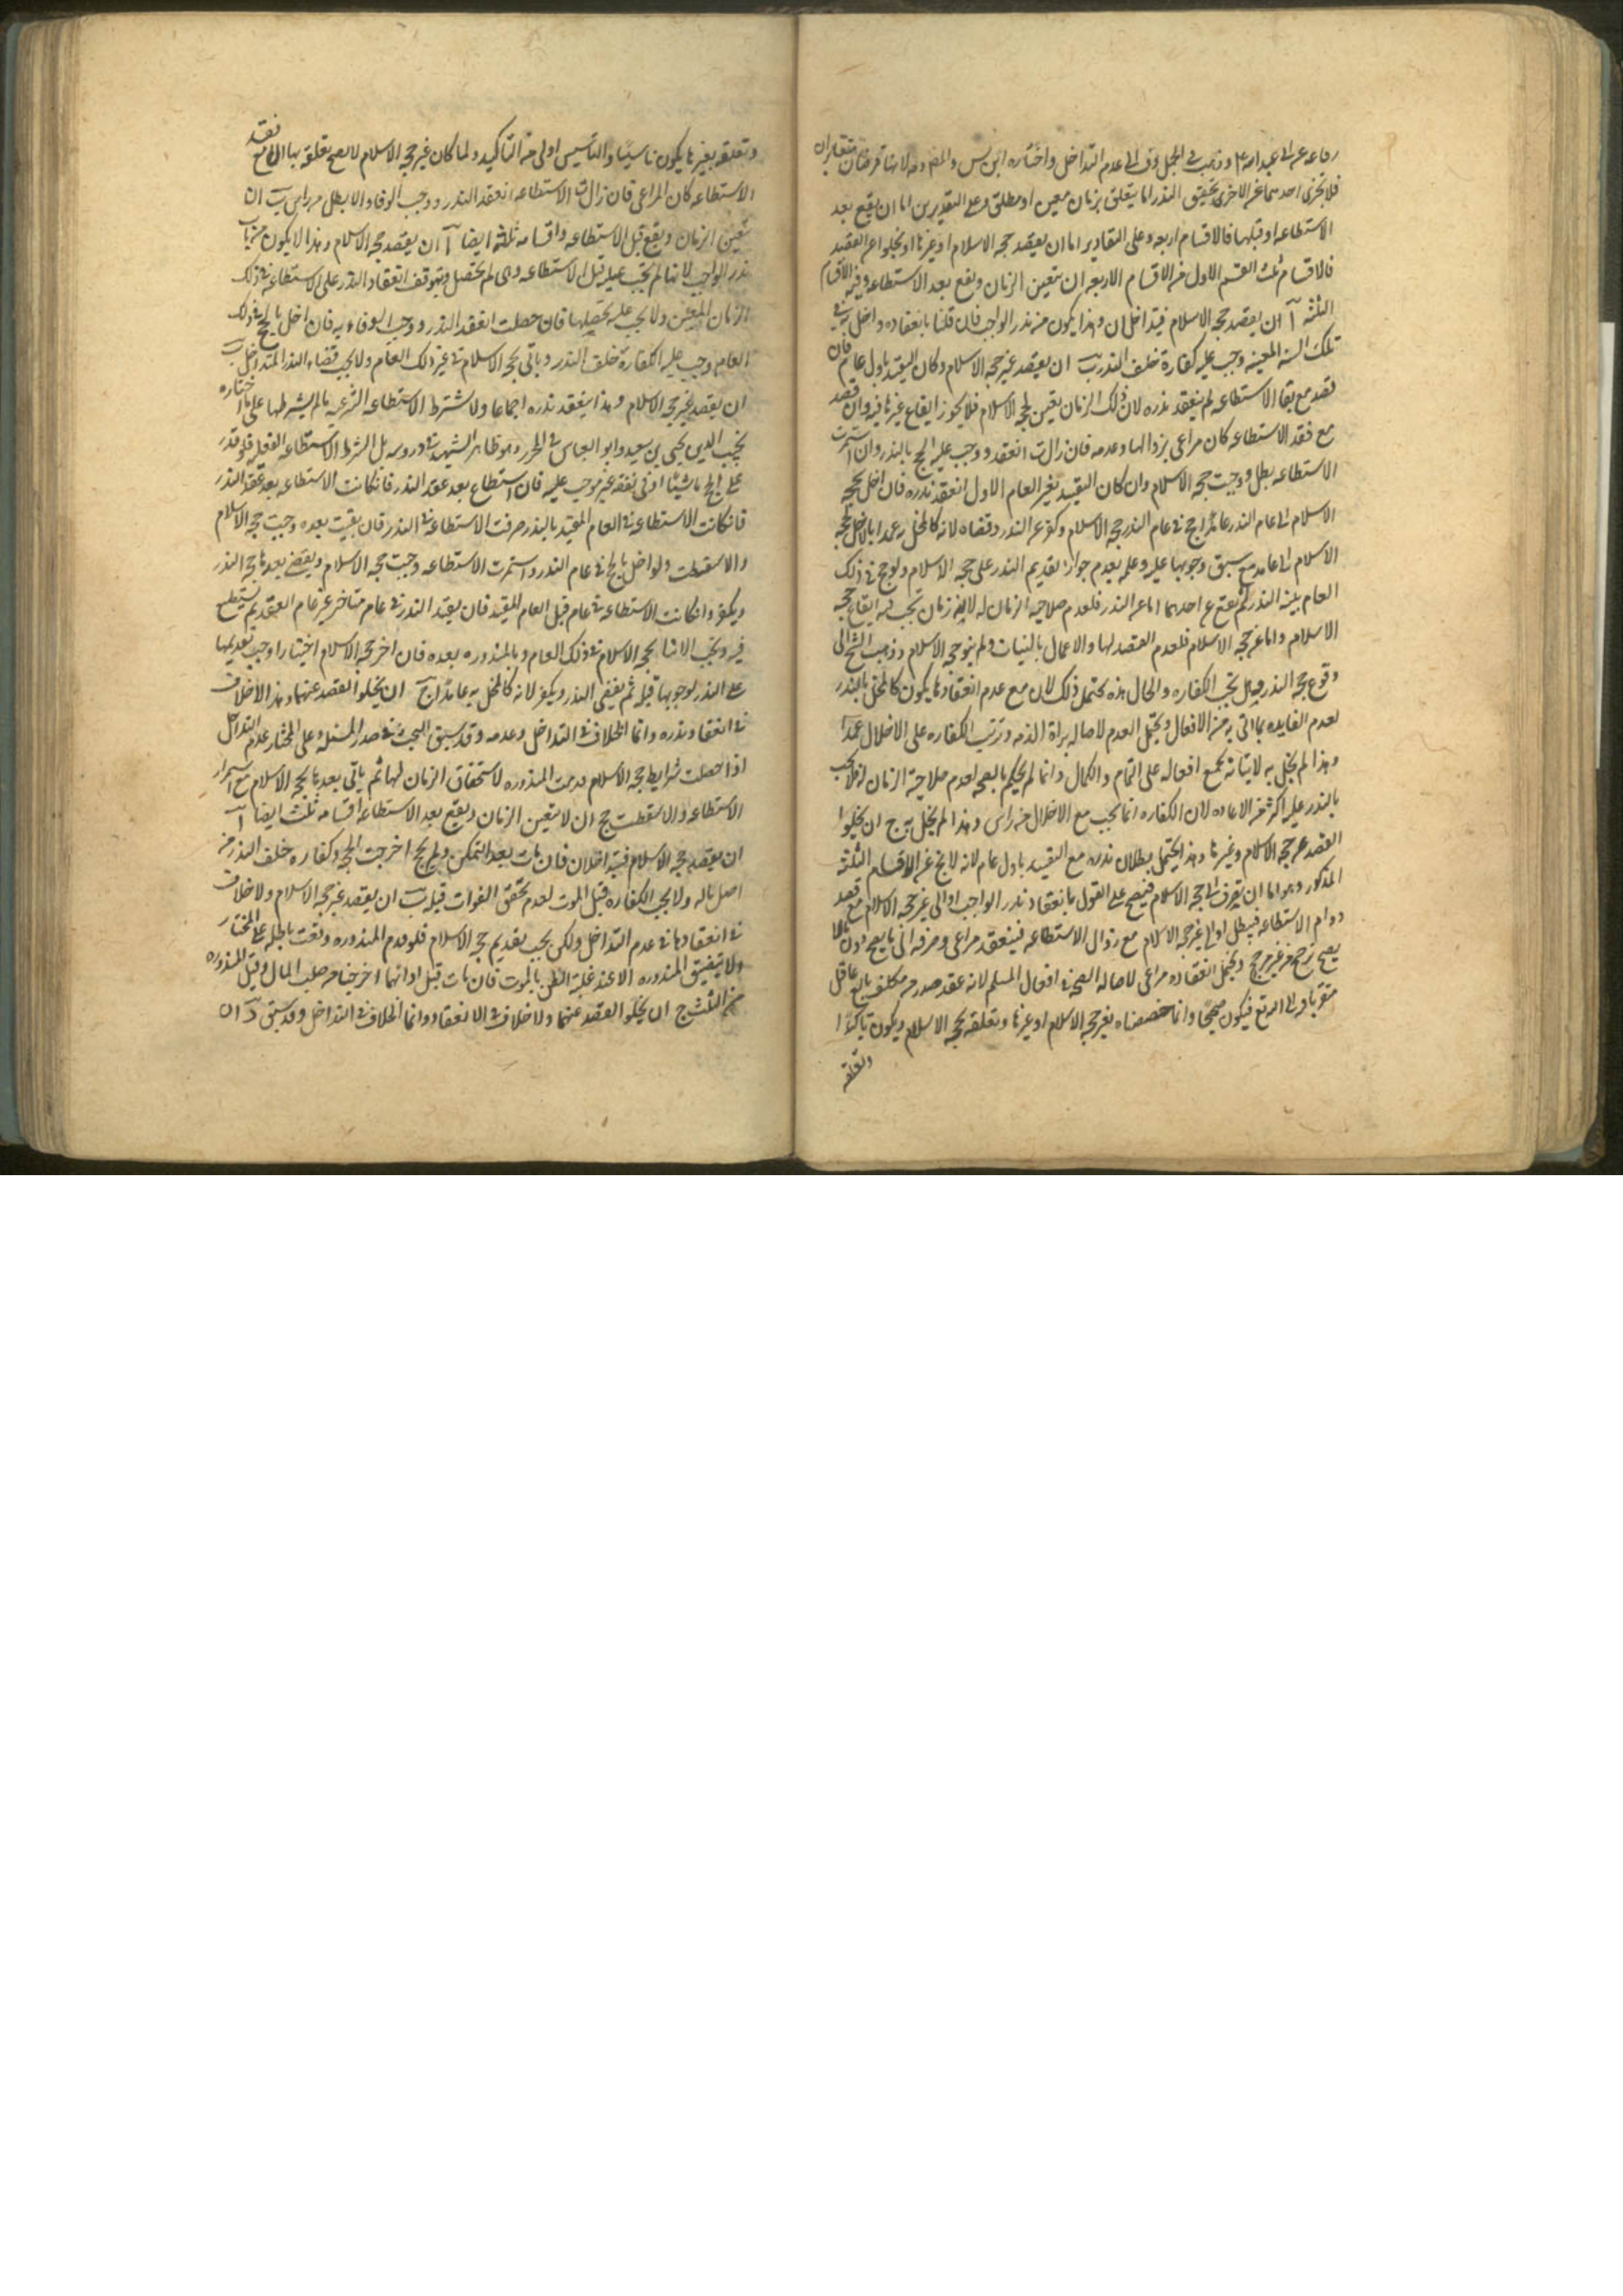 رفاعه عن ابى عبد الله ع وذهب فى الجمل وف الى عدم التداخل واختاره ابن س والمص وهو لانهما فرضان متغايران
فلا تجزى احدهما عن الاخرى تحقيق النذر اما يتعلق بزمان معين او مطلق وعلى التقديرين اما ان يقع بعد
الاستطاعه او قبلها فالاقسام اربعه وعلى التقادير اما ان يقصد حجه الاسلام او غيرها او يخلوا عن القصد
فالاقسام ثلث القسم الاول من الاقسام الاربعه ان يتعين الزمان ويقع بعد الاستطاعه وفيه الاقسام
الثلثه آ ان يقصد حجه الاسلام فيتداخلان وهذا يكون من نذر الواجب فان قلنا بانعقاده واخل به فى
تلك السنه المعينه وجب عليه كفارة خلف النذر ب ان يقصد غير حجه الاسلام وكان القيد باول عام فان
قصد مع بقا الاستطاعه لم ينعقد نذره لان ذلك الزمان تعين لحجه الاسلام فلا يجوز ايقاع غيرها فيه وان قصد
مع فقد الاستطاعه كان مراعى بزوالها وعدمه فان زالت انعقد ووجب عليه الحج بالنذر وان استمرت
الاستطاعه بطل ووجبت حجه الاسلام وان كان القيد بغير العام الاول انعقد نذره فان اخل بحجه
الاسلام الى عام النذر عامدا حج فى عام النذر حجه الاسلام وكفر عن النذر وقضاه لانه كالمخل به عمدا بالاخلال بحجه
الاسلام الى عامه مع سبق وجوبها عليه وعلمه بعدم جواز تقديم النذر على حجه الاسلام ولو حج فى ذلك
العام بنية النذر لم يقع عن احدهما اما عن النذر فلعدم صلاحيه الزمان له لانه زمان تجب فيه ايقاع حجه
الاسلام واما عن حجه الاسلام فلعدم القصد لها والاعمال بالنيات ولم ينو حجه الاسلام وذهب الشيخ الى
وقوع حجه النذر وهل تجب الكفاره والحال هذه يحتمل ذلك لان مع عدم انعقادها يكون كالمخل بالنذر
لعدم الفايده بما اتى به من الافعال ويحتمل العدم لاصاله براة الذمه وترتب الكفاره على الاخلال عمدا
وهذا لم يخل به لاتيانه بجميع افعاله على التمام والكمال وانما لم يحكم بالصحه لعدم صلاحية الزمان له فلا يجب
بالنذر عليه اكثر من الاعاده لان الكفاره انما تجب مع الاخلال من راس وهذا لم يخل به ج ان يخلوا
القصد عن حجه الاسلام وغيرها وهذا يحتمل بطلان نذره مع التقييد باول عام لانه لا يخ عن الاقسام الثلثه
المذكور وهو اما ان يصرف الى حجه الاسلام فيصح على القول بانعقاد نذر الواجب او الى غير حجه الاسلام مع قصد
دوام الاستطاعه فيبطل او الى غير حجه الاسلام مع زوال الاستطاعه فينعقد مراعى وصرفه الى ما يصح دون ما لا
يصح ترجح من غير مرجح ويحتمل انعقاده مراعى لاصاله الصحه فى افعال المسلم لانه عقد صدر من مكلف بالغ عاقل
متقربا فيه الى الله تع فيكون صحيحا وانما خصصناه بغير حجه الاسلام او غيرها وتعلقه بحجه الاسلام ويكون تاكيدا
وتعلقه
وتعلقه بغيرها يكون تاسيسا والتاسيس اولى من التاكيد ولما كان غير حجه الاسلام لا يصح تعلقه بها الا مع فقد
الاستطاعه كان المراعى فان زالت الاستطاعه انعقد النذر ووجب الوفا والا بطل من راس ب ان
تتعين الزمان ويقع قبل الاستطاعه واقسامه ثلثه ايضا آ ان يقصد حجه الاسلام وهذا لا يكون من باب
نذر الواجب لانها لم تجب عليه قبل الاستطاعه وهى لم تحصل فيتوقف انعقاد النذر على الاستطاعه فى ذلك
الزمان المعين ولا يجب عليه تحصيلها فان حصلت انعقد النذر ووجب الوفاء به فان اخل بالحج فى ذلك
العام وجب عليه الكفارة خلف النذر وياتى بحجه الاسلام فى غير ذلك العام ولا يجب قضاء النذر المتداخل ب
ان يقصد غير حجه الاسلام وهذا ينعقد نذره اجماعا ولا تشترط الاستطاعه الشرعيه ما لم يشترطها على ما اختاره
نجيب الدين يحيى بن سعيد وابو العباس فى المحرر وهو ظاهر الشهيد فى دروسه بل الشرط الاستطاعه العقليه فلو قدر
على الحج ماشيا او فى نفقه غير موجب عليه فان استطاع بعد عقد النذر فان كانت الاستطاعه بعد عقد النذر
فان كانت الاستطاعه فى العام المقيد بالنذر صرفت الاستطاعه فى النذر فان بقيت بعده وجبت حجه الاسلام
والا سقطت ولو اخل بالحج فى عام النذر واستمرت الاستطاعه وجبت حجه الاسلام ويقضى بعدها حجه النذر
ويكفر وان كانت الاستطاعه فى عام قبل العام المقيد فان يقيد النذر فى عام متاخر عن عام العقد ثم يستطيع
فيه وتجب الاتيان بحجه الاسلام فى ذلك العام وبالمنذوره بعده فان اخر حجه الاسلام اختيارا وجب تقديمها
على النذر لوجوبها قبله ثم يقضى النذر ويكفر لانه كالمخل به عامدا ج ان يخلوا القصد عنهما وهذا لا خلاف
فى انعقاد نذره وانما الخلاف فى التداخل وعدمه وقد سبق البحث فى صدر المسئله وعلى المختار عدم التداخل
اذا حصلت شرايط حجه الاسلام قدمت المنذوره لاستحقاق الزمان لها ثم ياتى بعدها بحجه الاسلام مع استمرار
الاستطاعه والا سقطت ج ان لا يتعين الزمان ويقع بعد الاستطاعه اقسامه ثلث ايضا آ
ان يقصد حجه الاسلام فيتداخلان فان مات بعد التمكن ولم يحج اخرجت الحجه وكفاره خلف النذر من
اصل ماله ولا يجب الكفاره قبل الموت لعدم تحقق الفوات قبله ب ان يقصد غير حجه الاسلام ولا خلاف
فى انعقادها فى عدم التداخل ولكن يجب تقديم حج الاسلام فلو قدم المنذوره وقعت باطله على المختار
ولا يتضيق المنذوره الا عند غلبة الظن بالموت فان مات قبل ادائهما اخرجتا من صلب المال وقيل المنذوره
من الثلث ج ان يخلو القصد عنهما ولا خلاف فى الانعقاد وانما الخلاف فى التداخل وقد سبق د ان